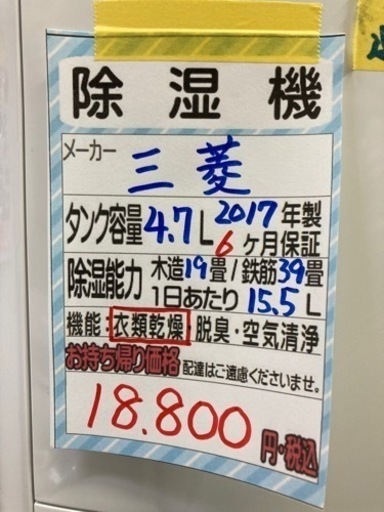 除湿機
メーカー 三菱
タンク容量 4.7L 2017年製
6ヶ月保証
除湿能力 木造19畳/鉄筋39畳
1日あたり 15.5L
機能:衣類乾燥・脱臭・空気清浄
お持ち帰り価格 配達はご遠慮くださいませ。
18.800円・税込